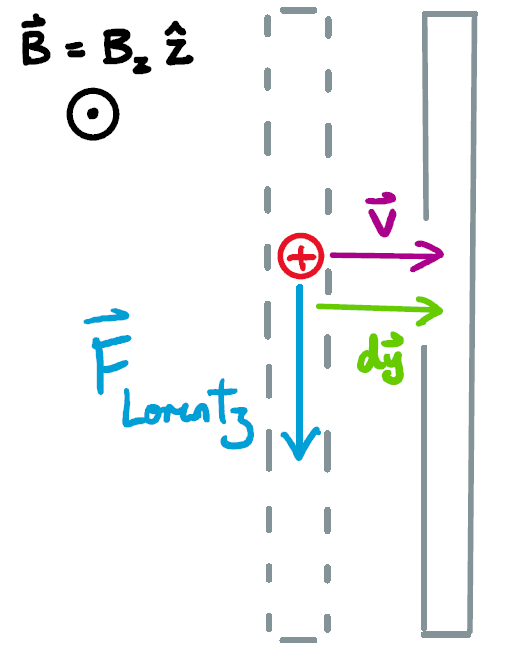 B⃗ = B_z ẑ
+
v⃗
dy⃗
F⃗_Lorentz